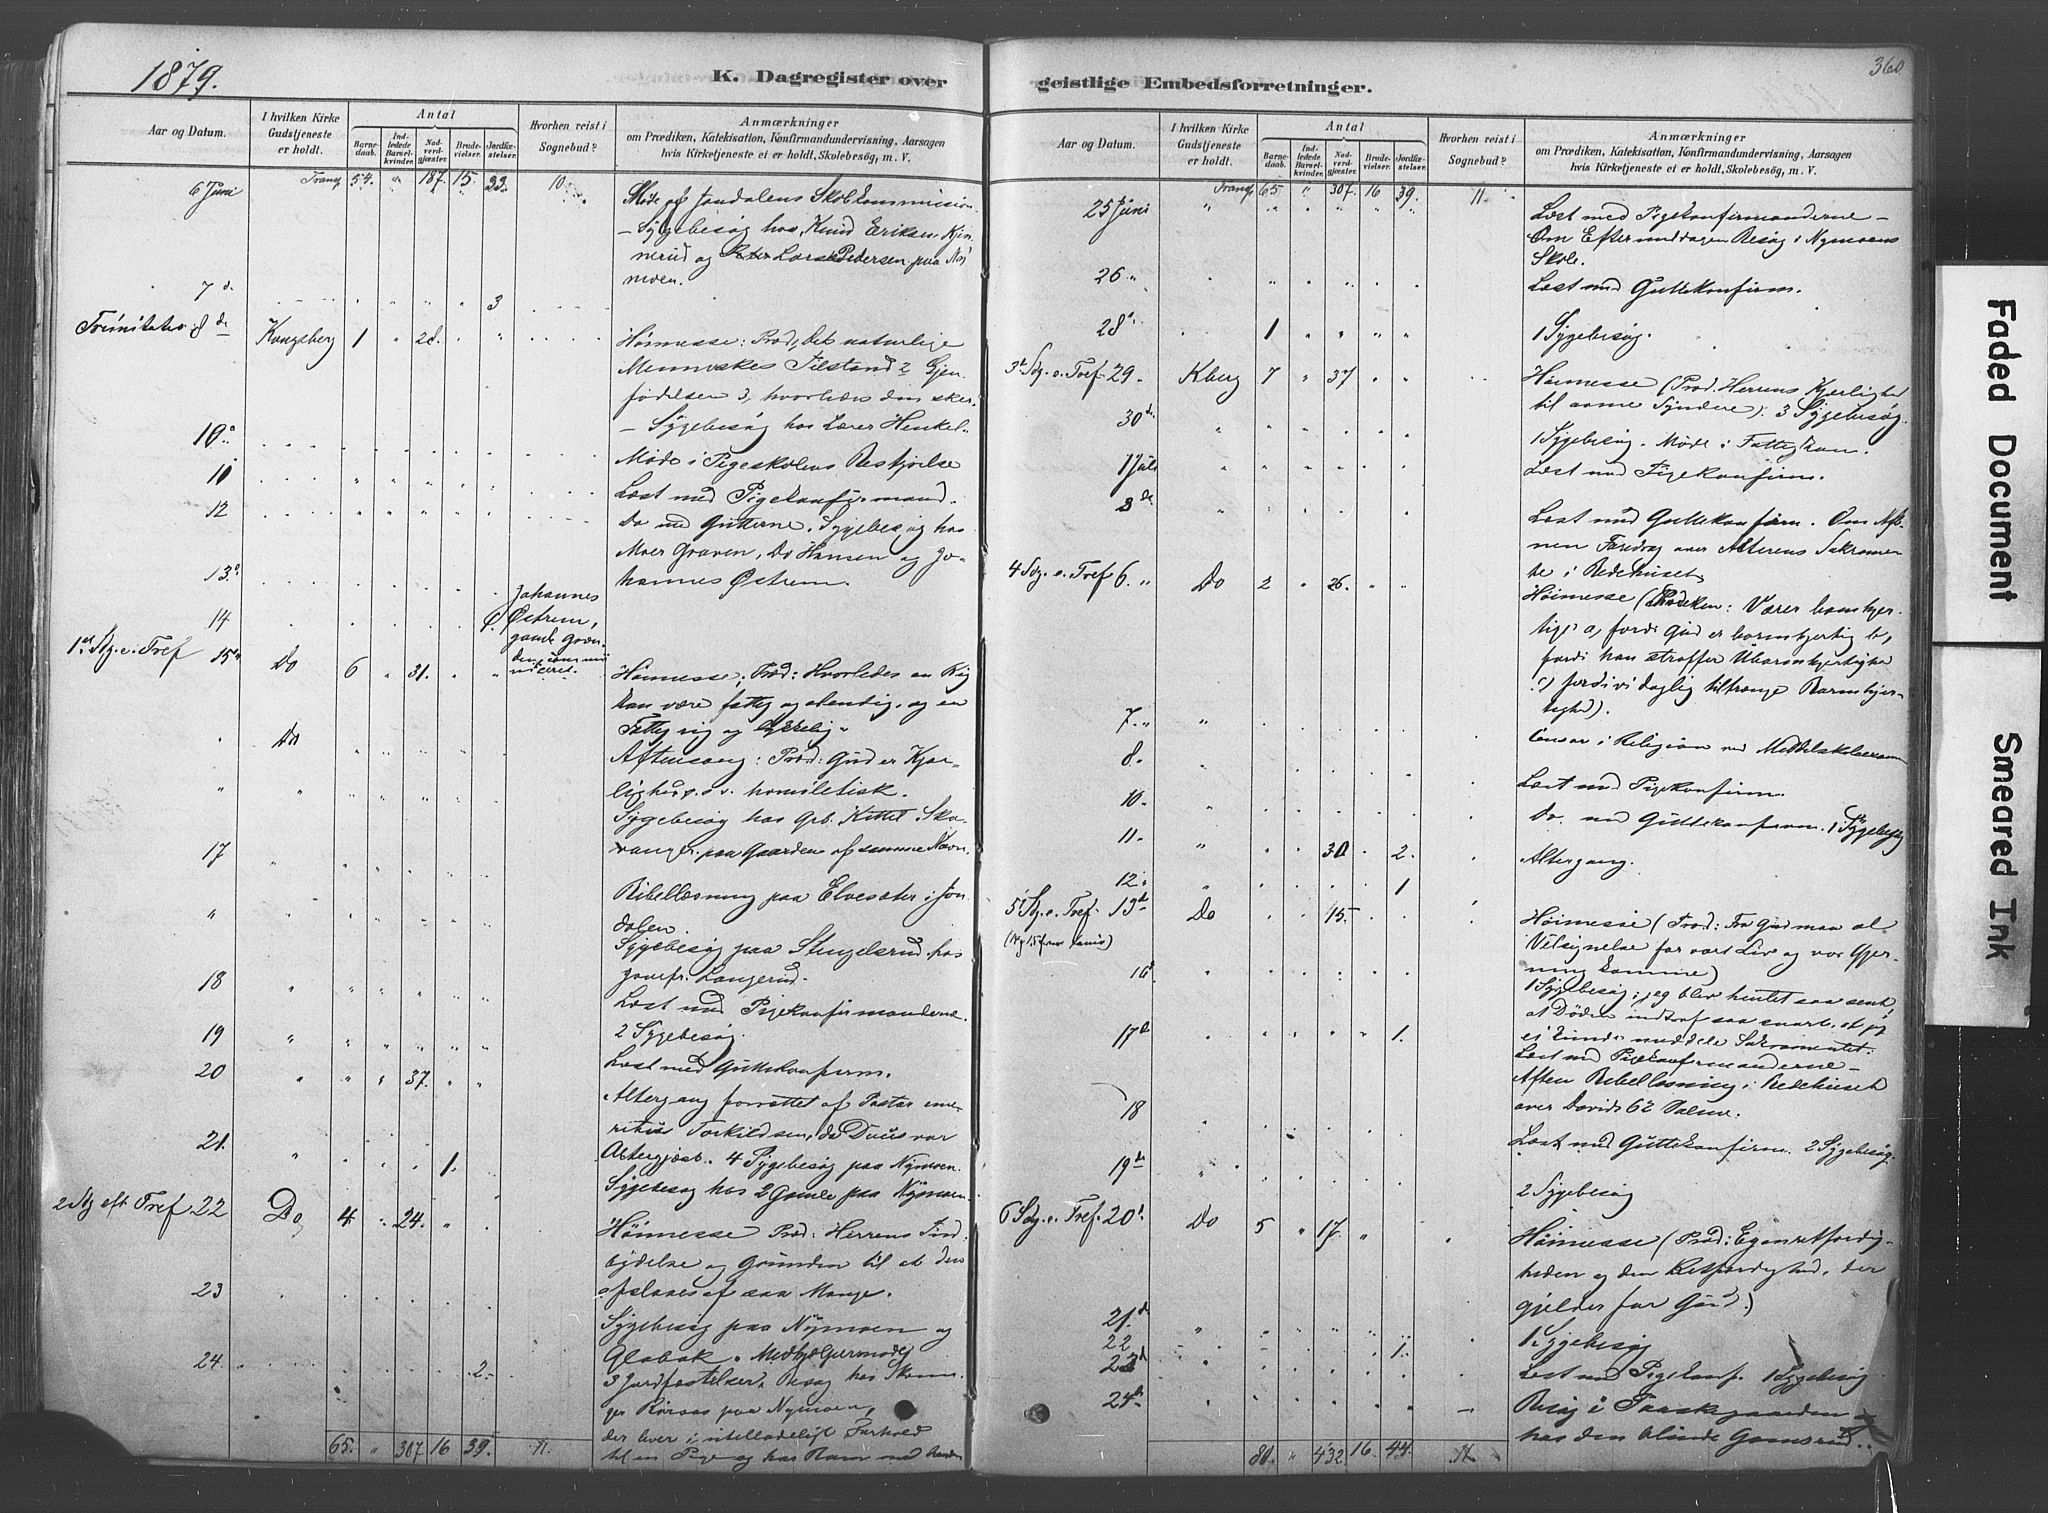 1879.
K. Dagregister over
Aar og Datum.
I hvilken Kirke Gudstjeneste er holdt.
Antal
Barnedaab.
Indledede Barselkvinder.
Nadverdgjæster.
Brudevielser.
Jordfæstelser.
Hvorhen reist i Sognebud?
Anmærkninger
om Prædiken, Katekisation, Konfirmandundervisning, Aarsagen
hvis Kirketjeneste ei er holdt, Skolebesøg, m. V.
Transp. 54. " 187. 15. 33. 10.
6 Juni Møde af Jondalens Skolekommission
– Sygebesøg hos Knud Eriksen
nerud og Lars Pedersen paa
moen.
7 d. 3
Trinitatis 8 de Kongsberg 1 " 28. Høimesse: Præd: det naturlige
Menneskes Tilstand 2 Gjen-
fødelsen 3, hvorledes den sker
– Sygebesøg hos Lærer Henkel.
10 Møde i Pigeskolens Bestyrelse
11 Læst med Pigekonfirmand.
12 Do med Gutterne. Sygebesøg hos
Moer Graven, Do Hansen og Jo-
hannes Østrem.
13
14 Johannes
Østrem,
gaml
1ste Sg. e. Tref 15 Do 6 " 31. Høimesse; Præd: Hvorledes en Rig
kan være fattig og elendig, og en
Fattig rig og lykkelig.
Do Aftensang: Præd: Gud er Kjær-
lighed o.s.v. homiletisk.
Sygebesøg hos Grb. Kittel Sko-
17 paa Gaarden af samme Navn.
Bibellæsning paa Elvesæter i Jon-
dalen.
Sygebesøg paa Stengelsrud hos
Jomfr. Langerud.
18 Læst med Pigekonfirmanderne.
19 2 Sygebesøg.
20 37. Læst med Guttekonfirm.
Altergang forrettet af Pastor eme-
ritus Torkildsen, da Duus var
21. 1. Altergjæst. 4 Sygebesøg paa Nymoen.
Sygebesøg hos 2 Gamle paa Nymoen
2 Sg eft Tref 22 Do 4 " 24. Høimesse Præd: Herrens Ind-
bydelse og Grunden til at den
23 afslaaes af saa Mange.
Sygebesøg paa Nymoen og
Glabak.
24. 2. 3 Jordfæstelser. Besøg hos Skom.
paa Nymoen,
der lever i utilladeligt Forhold
til en Pige og har Barn med hende
65. " 307 16 39. 11.
360.
geistlige Embedsforretninger.
Aar og Datum.
I hvilken Kirke Gudstjeneste er holdt.
Antal
Barnedaab.
Indledede Barselkvinder.
Nadverdgjæster.
Brudevielser.
Jordfæstelser.
Hvorhen reist i Sognebud?
Anmærkninger
om Prædiken, Katekisation, Konfirmandundervisning, Aarsagen
hvis Kirketjeneste ei er holdt, Skolebesøg, m. V.
Transp. 65 " 307. 16 39. 11.
25 Juni Læst med Pigekonfirmanderne –
Om Eftermiddagen Besøg i Nymoens
Skole.
26 " Læst med Guttekonfirm.
28 1 1 Sygebesøg.
3die Sdg. e. Tref. 29. Kberg 7 " 37 Høimesse (Præd. Herrens Kjærlighed
til arme Syndere). 3 Sygebesøg.
30 d. 1 Sygebesøg. Møde i Fattigkom.
1 Juli Læst med Pigekonfirm.
3 de Læst med Guttekonfirm. Om Afte-
nen Foredrag over Alterens Sakramen
te i Bedehuset
4 Sdg. e. Tref 6. " Do 2 " 26. Høimesse (Prædiken: Værer barmhjer-
tige a, fordi Gud er barmhjertig b,
fordi han straffer Ubarmhjertighed
c) fordi vi daglig tiltrænge Barmhjer-
tighed).
7. " Censor i Religion ved Middelskoleexamen
8. Læst med Pigekonfirm.
10. Do. med Guttekonfirm. 1 Sygebesøg
11. 30 2. Altergang.
12. 1
5 Sdg. e. Tref. 13 d Do 15. Høimesse (Præd: Fra Gud maa al
Velsignelse for vort Liv og vor Gjer-
ning komme)
16 d 1 Sygebesøg; jeg blev hentet saa sent,
at Døden indtraf saa snart, at jeg
17 d 1. ei kunde meddele Sakramentet.
Læst med Pigekonfirmanderne –
Aften Bibellæsning i Bedehuset
over Davids 62 Salme.
18 Læst med Guttekonfirm. 2 Sygebesøg.
19 de 2 Sygebesøg
6 Sdg. e. Tref. 20 d Do 5 " 17. Høimesse (Præd: Egenretfærdig-
heden og den Retfærdighed, der
gjelder for Gud.)
21. d 1 Sygebesøg
22 1. Læst med Pigekonf. 1 Sygebesøg
23 d
24 d Besøg i Torskegaarden
hos den blinde Gomsrud.
80. " 432 16. 44. 11
Faded Document
Smeared Ink